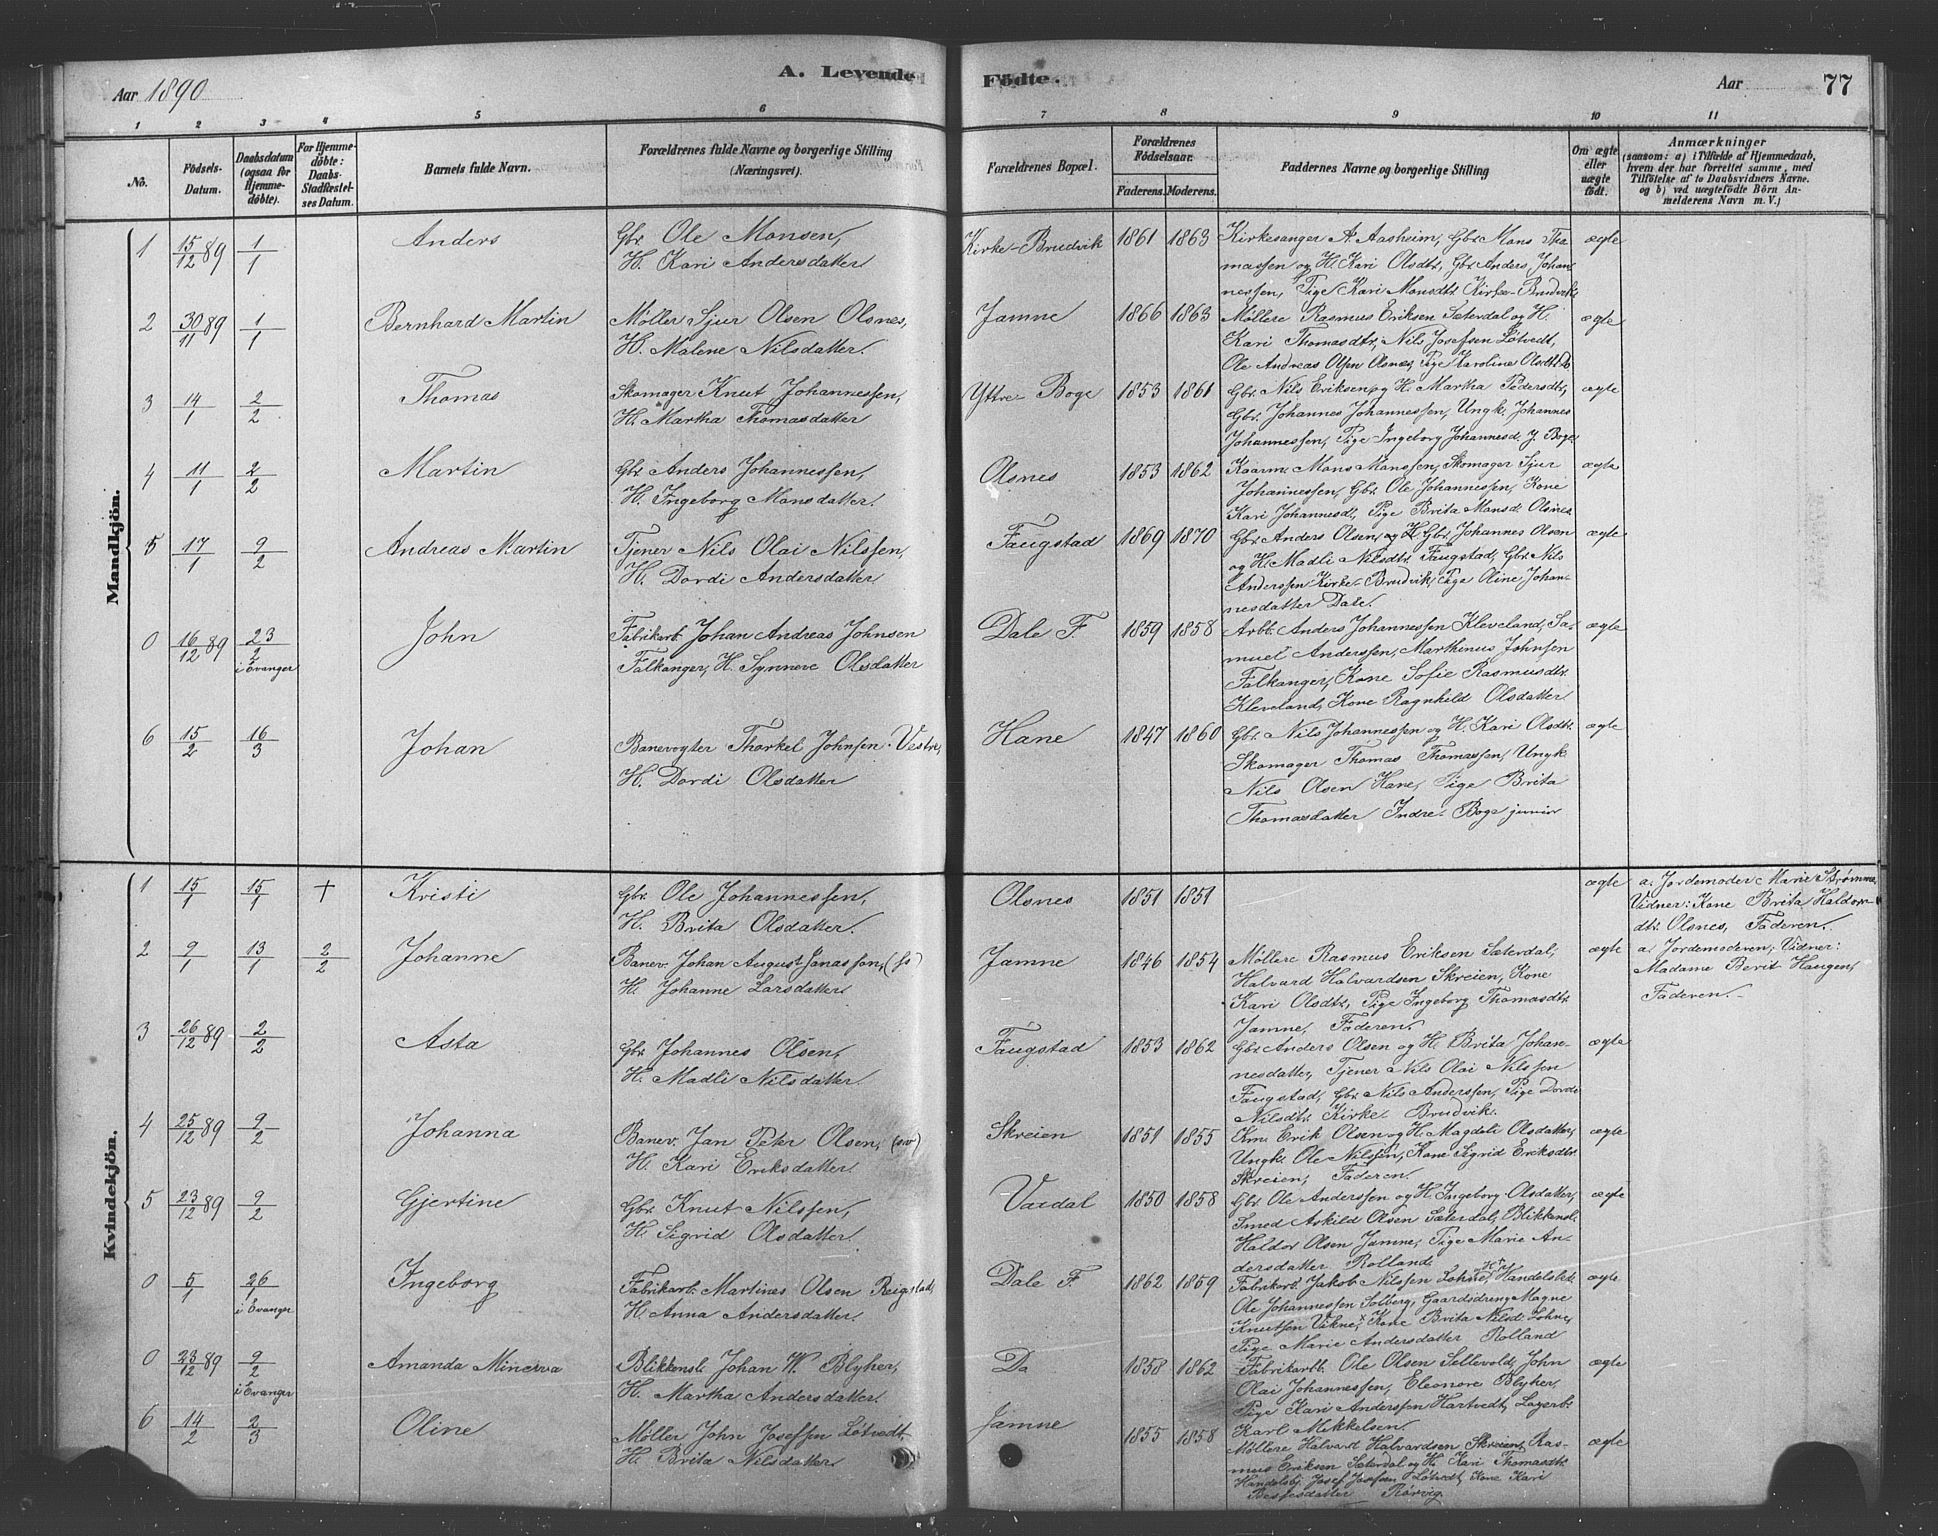 Aar 1890
A. Levende Födte.
Aar 77
1 2 3 4 5 6 7 8 9 10 11
No.
Födsels-
Datum.
Daabsdatum
(ogsaa for
Hjemme-
döbte).
For Hjemme-
döbte:
Daabs-
Stadfæstel-
ses Datum.
Barnets fulde Navn.
Forældrenes fulde Navne og borgerlige Stilling
(Næringsvei).
Forældrenes Bopæl.
Forældrenes
Födselsaar.
Faderens. Moderens.
Faddernes Navne og borgerlige Stilling
Om ægte
eller
uægte
födt.
Anmærkninger
(saasom: a) i Tilfælde af Hjemmedaab,
hvem der har forrettet samme, med
Tilföielse af to Daabsvidners Navne.
og b) ved uægtefödte Börn An-
melderens Navn m. V.)
Mandkjön.
1 15/12 89 1/1 Anders Gbr. Ole Monsen, Kirke-Brudvik 1861 1863 Kirkesanger A. Aasheim, Gbr. Mons Tho- ægte
H. Kari Andersdatter massen og H. Kari Olsdtr, Gbr. Anders Johan-
nessen, Pige Kari Monsdtr Kirke-Brudvik
2 30/11 89 1/1 Bernhard Martin Møller Sjur Olsen Olsnes, Jamne 1866 1863 Møllere Rasmus Eriksen Sæterdal og H. ægte
H. Malene Nilsdatter. Kari Thomasdtr, Nils Josefsen Løtvedt,
Ole Andreas Olsen Olsnes, Pige Karoline Olsdtr
3 14/1 2/2 Thomas Skomager Knut Johannessen, Yttre-Boge 1853 1861 Gbr. Nils Eriksen og H. Martha Pedersdtr, ægte
H. Martha Thomasdatter Gbr. Johannes Johannessen, Ungk. Johannes
Johannessen, Pige Ingeborg Johannesd. Y. Boge
4 11/1 2/2 Martin Gbr. Anders Johannessen, Olsnes 1853 1862 Kaarm. Mons Monssen, Skomager Sjur ægte
H. Ingeborg Monsdatter. Johannessen, Gbr. Ole Johannessen, Kone
Kari Johannesdt, Pige Brita Monsd. Olsnes
5 17/1 9/2 Andreas Martin Tjener Nils Olai Nilssen, Faugstad 1869 1870 Gbr. Anders Olsen, og H. Gbr. Johannes Olsen ægte
H. Dordi Andersdatter og H. Madli Nilsdtr. Faugstad, Gbr. Nils
Anderssen Kirke-Brudvik, Pige Oline Johan-
nesdatter Dale.
0 16/12 89 23/2 John Fabrikarb. Johan Andreas Johnsen Dale F. 1859 1858 Arbb. Anders Johannessen Kleveland, Sa- ægte
i Evanger Falkanger, H. Synneve Olsdatter muel Anderssen, Marthinus Johnsen
Falkanger, Kone Sofie Rasmusdtr.
Kleveland, Kone Ragnhild Olsdatter
6 15/2 16/3 Johan Banevogter Thorkel Johnsen Vestre, Hane 1847 1860 Gbr. Nils Johannessen og H. Kari Olsdtr. ægte
H. Dordi Olsdatter Skomager Thomas Thomassen, Ungk.
Nils Olsen Hane, Pige Brita
Thomasdatter Indre-Boge junior
Kvindekjön.
1 15/1 15/1 † Kristi Gbr. Ole Johannessen, Olsnes 1851 1851 ægte a. Jordemoder Marie Strømme,
H. Brita Olsdatter. Vidner: Kone Brita Haldors-
dtr. Olsnes, Faderen.
2 9/1 13/1 2/2 Johanne Banev. Johan August Jonassen, Jamne 1846 1854 Møllere Rasmus Eriksen Sæterdal, ægte a. Jordemoderen; Vidner:
H. Johanne Larsdatter. Halvard Halvardsen Skreien, Kone Madame Berit Haugen,
Kari Olsdtr, Pige Ingeborg Thomasdtr Faderen.
Jamne, Faderen.
3 26/12 89 2/2 Asta Gbr. Johannes Olsen, Faugstad 1853 1862 Gbr. Anders Olsen og H. Brita Johan- ægte
H. Madli Nilsdatter. nesdatter, Tjener Nils Olai Nilssen
Faugstad, Gbr. Nils Anderssen, Pige Dordi
Nilsdtr. Kirke Brudvik.
4 25/12 89 9/2 Johanna Banev. Jan Peter Olsen, (sv) Skreien 1851 1855 Km. Erik Olsen og H. Magdeli Olsdatter, ægte
H. Kari Eriksdatter. Ungk. Ole Nilssen, Kone Sigrid Eriksdtr.
Skreien, Faderen.
5 23/12 89 9/2 Gjertine Gbr. Knut Nilssen, Vardal 1850 1858 Gbr. Ole Anderssen og H. Ingeborg Olsdatter, ægte
H. Sigrid Olsdatter. Smed Askild Olsen Sæterdal, Blikkensl.
Haldor Olsen Jamne, Pige Marie An-
dersdatter Rolland.
0 5/1 26/1 Ingeborg Fabrikarb. Martines Olsen Reigstad, Dale F. 1862 1859 Fabrikarb. Jakob Nilssen Lohne, Handelsbet. ægte
i Evanger H. Anna Andersdatter. Ole Johannessen Solberg, Gaardsdreng Magne
Knutsen Vikne, Kone Brita Nilsd. Lohne,
Pige Marie Andersdatter Rolland
0 23/12 89 9/2 Amanda Minerva Blikkensl. Johan W. Blyher, Do 1858 1862 Fabrikarbb. Ole Olsen Sellevold, John ægte
i Evanger H. Martha Andersdatter. Olai Johannessen, Eleonore Blyher,
Pige Kari Anderssen Hartvedt, Lagerb.
Karl Mikkelsen.
6 14/2 2/3 Oline Møller John Josefsen Løtvedt, Jamne 1855 1858 Møllere Halvard Halvardsen Skreien, Ras- ægte
H. Brita Nilsdatter. mus Eriksen Sæterdal og H. Kari Thomasdtr.
Handelsbj. Josef Josefsen Løtvedt, Kone Kari
Rørvig